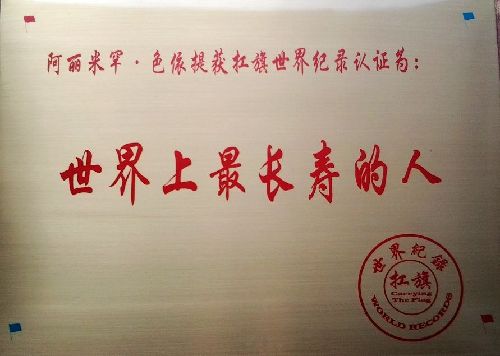 阿丽米罕·色依提获扛旗世界纪录认证为：
世界上最长寿的人
世界紀錄
扛旗
Carrying
The Flag
WORLD RECORDS